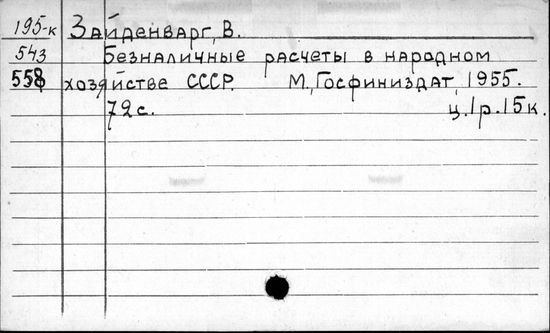 195-к Зайденварг, В.
543 Безналичные расчеты в народном
558 хозяйстве СССР. М., Госфиниздат, 1955.
72 с. ц. 1 р. 15 к.